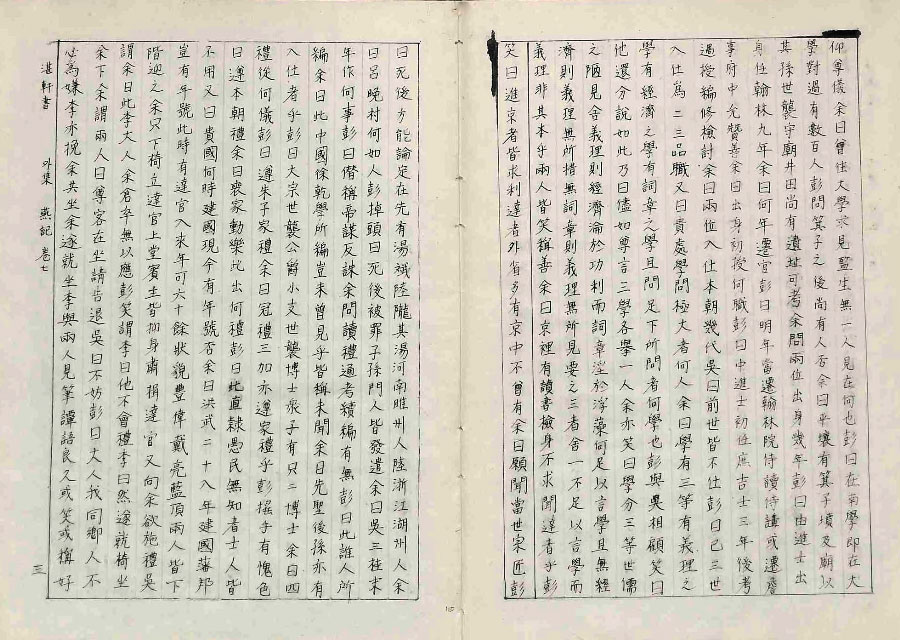 仰尊儀余曰曾往大學求見監生無一人見在何也彭曰在南學即在大
學對過有數百人彭問箕子之後尚有人否余曰平壤有箕子墳及廟以
其孫世襲守廟井田尚有遺址可考余問兩位出身幾年彭曰由進士出
身任翰林九年余曰何年遷官彭曰明年當遷翰林院侍讀侍講或遷詹
事府中允贊善余曰出身初授何職彭曰中進士初任庶吉士三年後考
過授編修檢討余曰兩位入仕本朝幾代吳曰前世皆不仕彭曰已三世
入仕爲二三品職又曰貴處學問極大者何人余曰學有三等有義理之
學有經濟之學有詞章之學且問足下所問者何學也彭與吳相顧笑曰
他還分說如此乃曰儘如尊言三學各擧一人余亦笑曰學分三等世儒
之陋見舍義理則經濟淪於功利而詞章淫於浮藻何足以言學且無經
濟則義理無所措無詞章則義理無所見要之三者舍一不足以言學而
義理非其本乎兩人皆笑稱善余曰京裡有讀書檢身不求聞達者乎彭
笑曰進京者皆求利達者外省多有京中不曾有余曰願聞當世宗匠彭
曰死後方能論定在先有湯斌陸隴其湯河南睢州人陸浙江湖州人余
曰呂晚村何如人彭掉頭曰死後被罪子孫門人皆發遣余曰吳三桂末
年作何事彭曰僭稱帝謀反誅余問讀禮通考續編有無彭曰此誰人所
編余曰此中國徐乾學所編豈未曾見乎皆稱未聞余曰先聖後孫亦有
入仕者乎彭曰大宗世襲公爵小支世襲博士衆子有只二博士余曰四
禮從何儀彭曰遵朱子家禮余曰冠禮三加亦遵家禮乎彭搖手有愧色
曰遵本朝禮余曰喪家動樂此出何禮彭曰此直隸愚民無知者士人皆
不用又曰貴國何時建國現今有年號否余曰洪武二十八年建國藩邦
豈有年號此時有達官入來年可六十餘狀貌豐偉戴亮藍頂兩人皆下
階迎之余只下椅立達官上堂賓主皆捬身肅揖達官又向余欲施禮吳
謂余曰此李大人余倉卒無以應彭笑謂李曰他不會禮李曰然遂就椅坐
余下余謂兩人曰尊客在坐請告退吳曰不妨彭曰大人我同鄉人不
必爲嫌李亦挽余共坐余遂就坐李與兩人見筆譚語良久或笑或稱好
湛軒書 外集 燕記 卷七 三